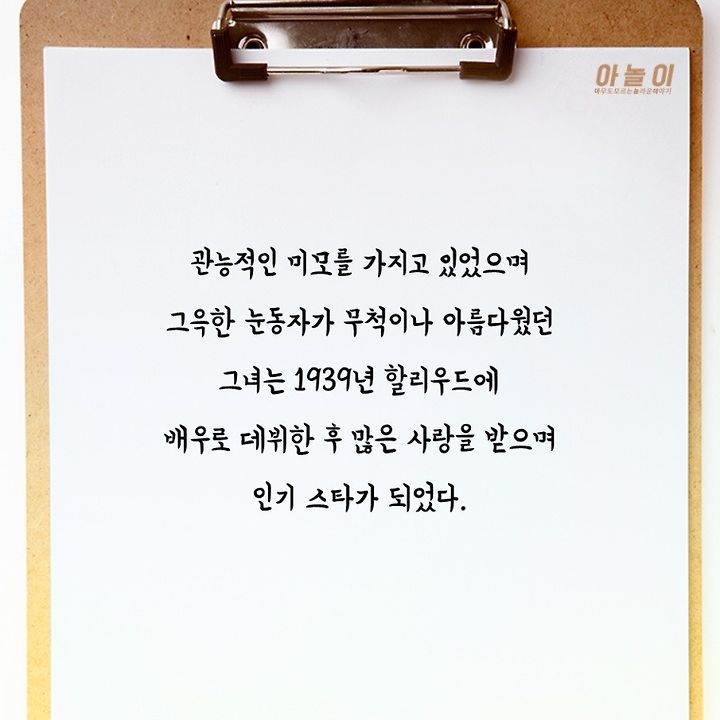 아놀이
아무도모르는놀라운이야기
관능적인 미모를 가지고 있었으며
그윽한 눈동자가 무척이나 아름다웠던
그녀는 1939년 할리우드에
배우로 데뷔한 후 많은 사랑을 받으며
인기 스타가 되었다.